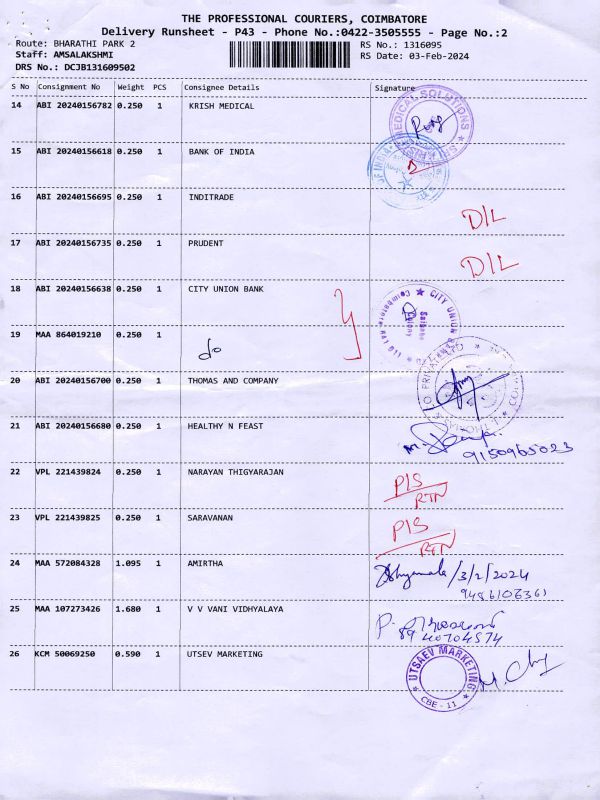 THE PROFESSIONAL COURIERS, COIMBATORE
Delivery Runsheet - P43 - Phone No.:0422-3505555 - Page No.:2
Route: BHARATHI PARK 2
Staff: AMSALAKSHMI
DRS No.: DCJB131609502
RS No.: 1316095
RS Date: 03-Feb-2024
S No Consignment No Weight PCS Consignee Details Signature
14 ABI 20240156782 0.250 1 KRISH MEDICAL
MEDICAL SOLUTIONS
15 ABI 20240156618 0.250 1 BANK OF INDIA
OF INDIA
16 ABI 20240156695 0.250 1 INDITRADE D/L
17 ABI 20240156735 0.250 1 PRUDENT D/L
18 ABI 20240156638 0.250 1 CITY UNION BANK
CITY UNION
Coimbatore
19 MAA 864019210 0.250 1 do
20 ABI 20240156700 0.250 1 THOMAS AND COMPANY
21 ABI 20240156680 0.250 1 HEALTHY N FEAST
9150965023
22 VPL 221439824 0.250 1 NARAYAN THIGYARAJAN P/S
RTN
23 VPL 221439825 0.250 1 SARAVANAN P/S
RTN
24 MAA 572084328 1.095 1 AMIRTHA Shyamala /3/2/2024
25 MAA 107273426 1.680 1 V V VANI VIDHYALAYA
8940704574
26 KCM 50069250 0.590 1 UTSEV MARKETING
UTSAEV MARKETING
CBE - 11